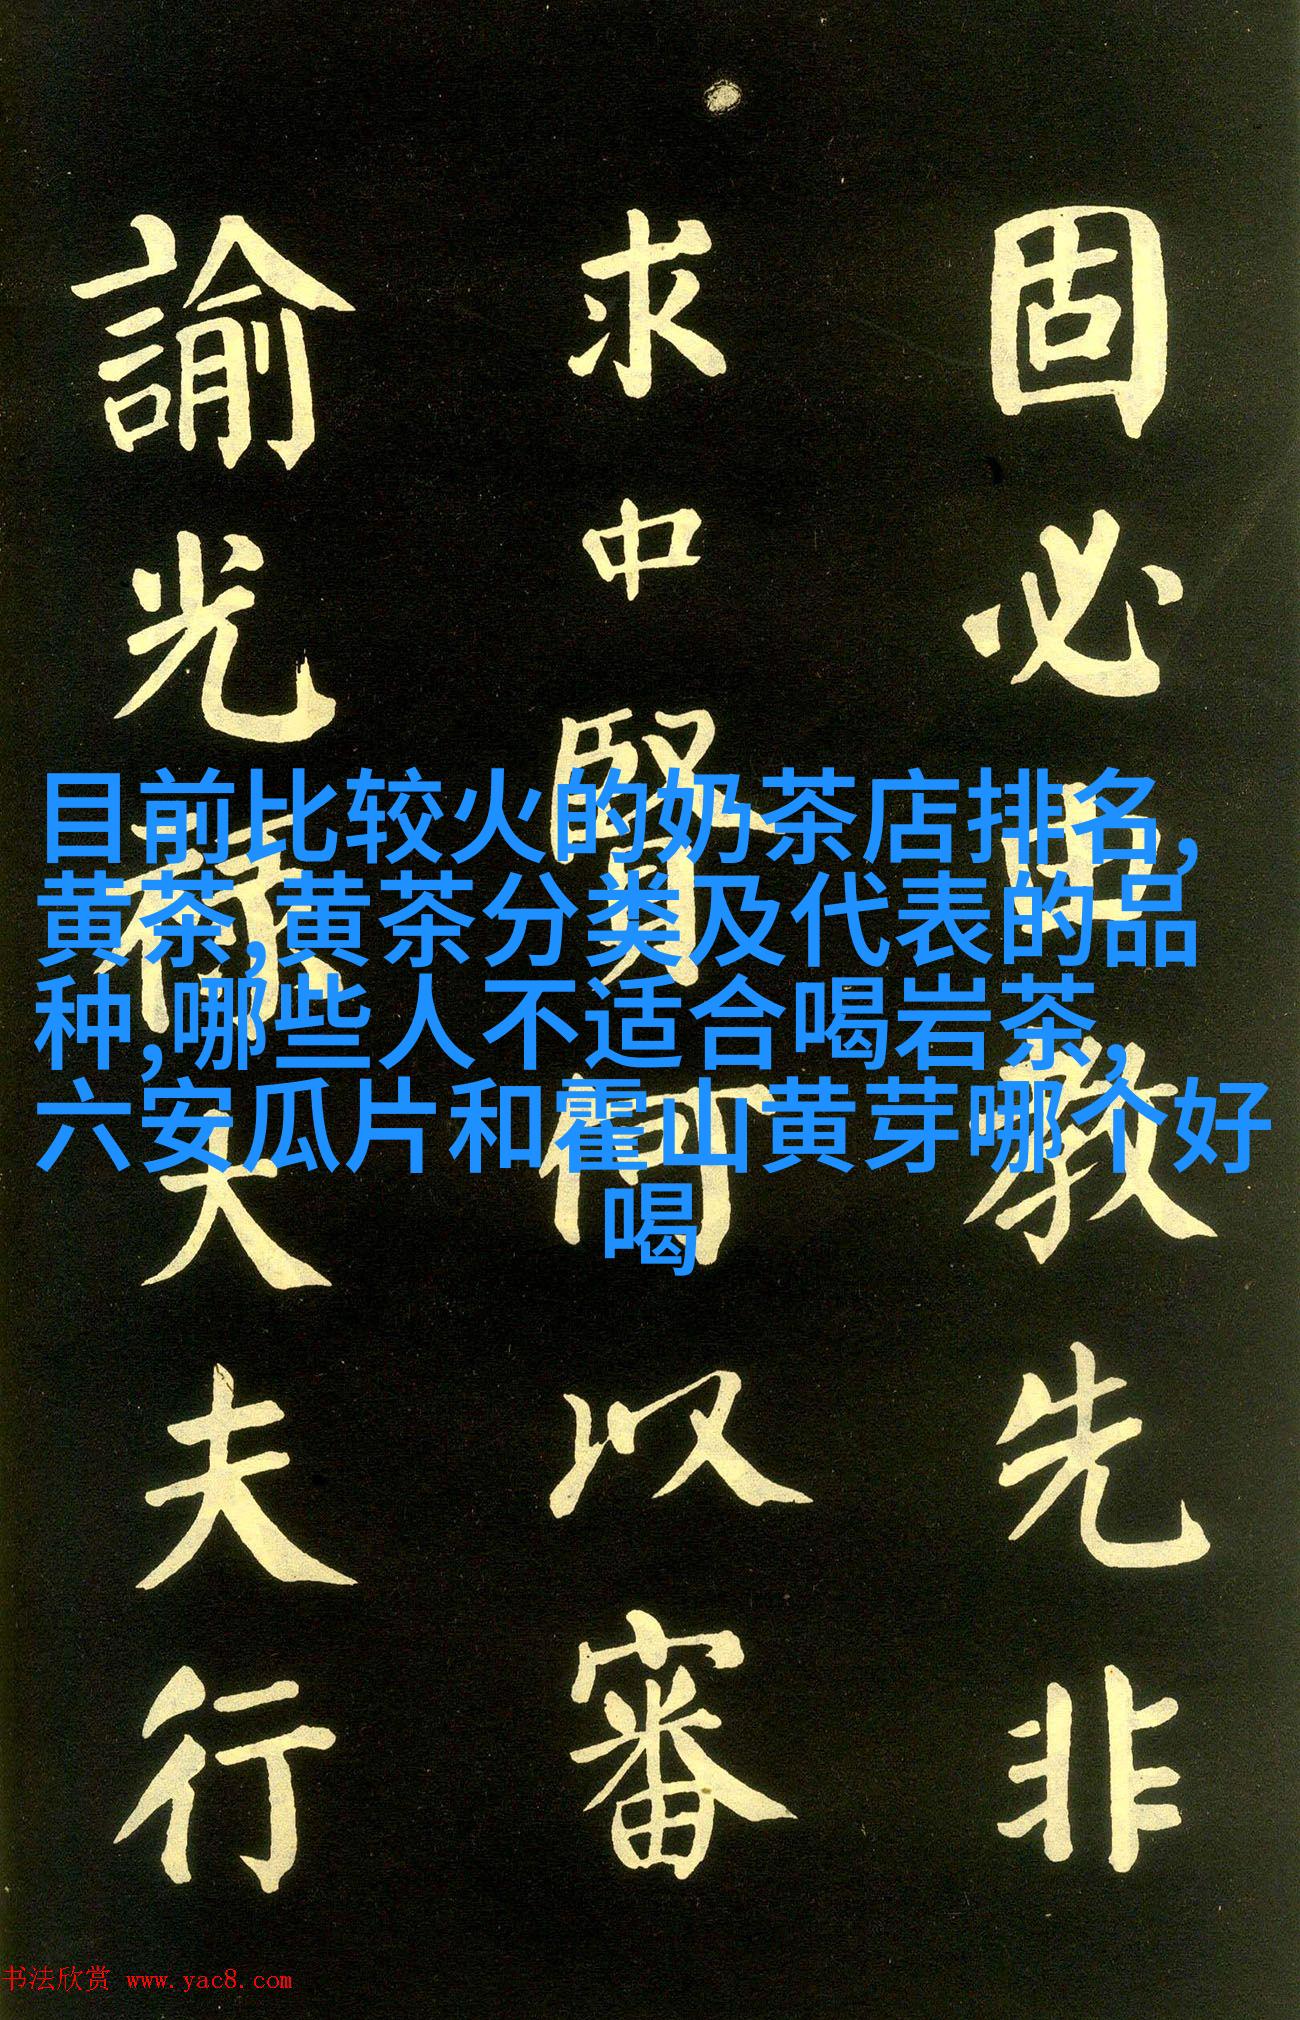 固必由教先非
求中賢何以審
諭光祿大夫行
目前比较火的奶茶店排名,
黄茶,黄茶分类及代表的品
种,哪些人不适合喝岩茶,
六安瓜片和霍山黄芽哪个好
喝
书法欣赏 www.yac8.com